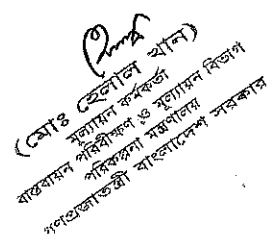 (মোঃ হেলাল খান)
মূল্যায়ন কর্মকর্তা
বাস্তবায়ন পরিবীক্ষণ ও মূল্যায়ন বিভাগ
পরিকল্পনা মন্ত্রণালয়
গণপ্রজাতন্ত্রী বাংলাদেশ সরকার